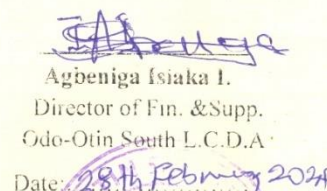 Agbeniga Isiaka I.
Director of Fin. &Supp.
Odo-Otin South L.C.D.A
Date: 28th February 2024